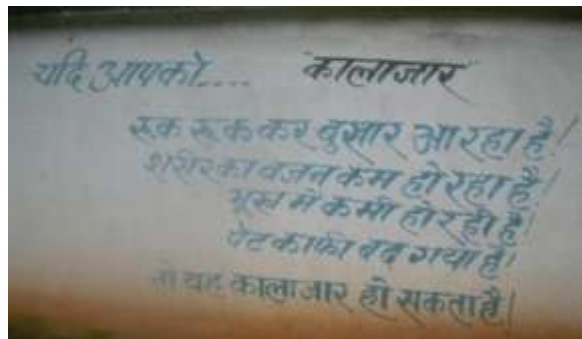 यदि आपको.... कालाजार
रूक रूक कर बुखार आ रहा है!
शरीर का वजन कम हो रहा है!
भूख मे कमी हो रही है!
पेट काफी बढ गया है!
तो यह कालाजार हो सकता है!